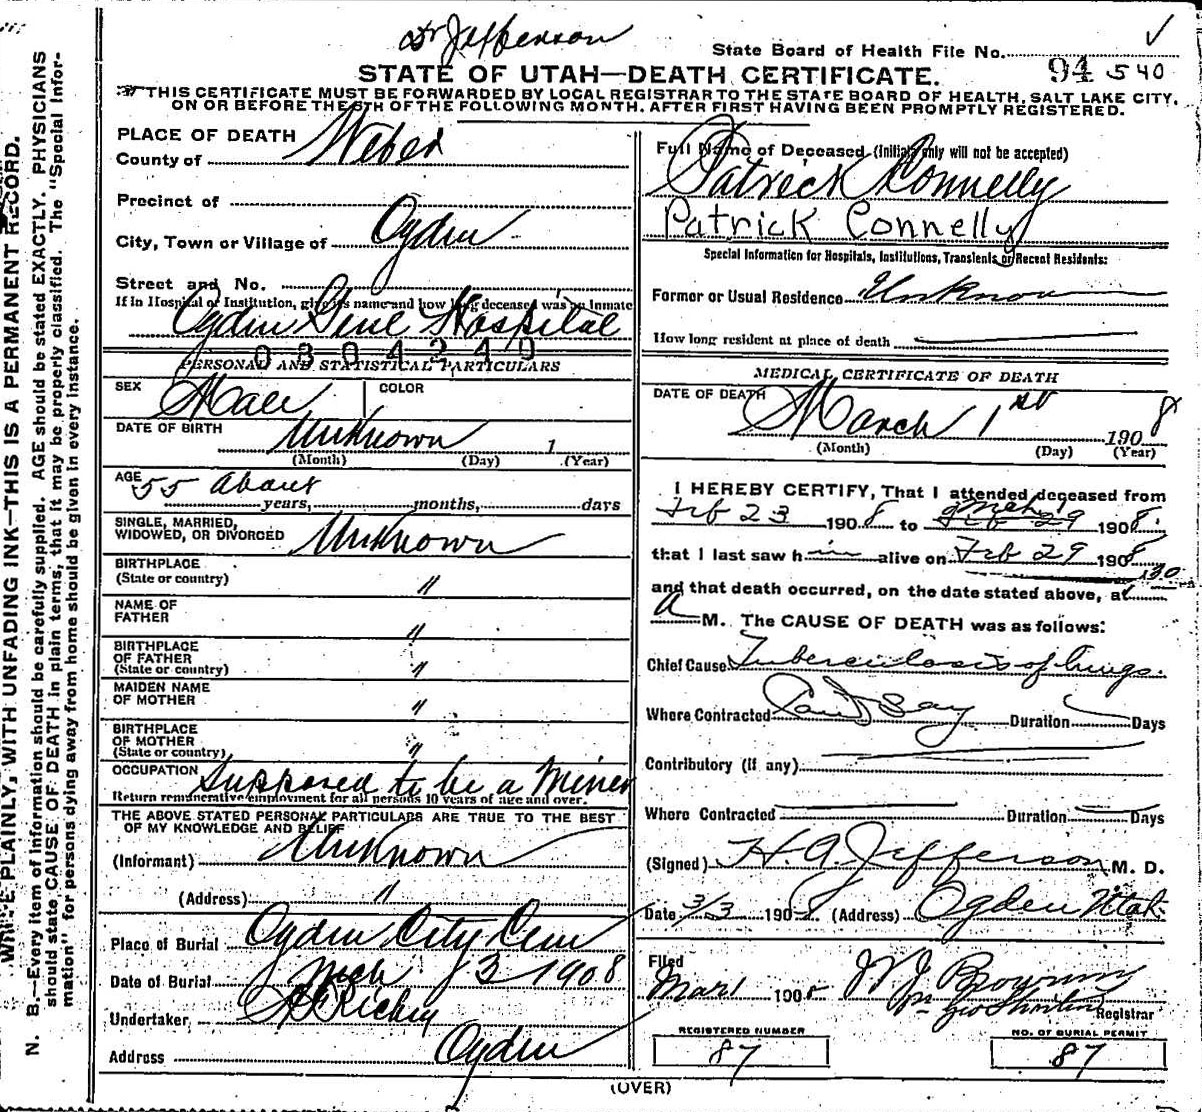 Dr Jefferson
State Board of Health File No. 94 540
STATE OF UTAH—DEATH CERTIFICATE.
THIS CERTIFICATE MUST BE FORWARDED BY LOCAL REGISTRAR TO THE STATE BOARD OF HEALTH, SALT LAKE CITY,
ON OR BEFORE THE 5TH OF THE FOLLOWING MONTH. AFTER FIRST HAVING BEEN PROMPTLY REGISTERED.
WRITE PLAINLY, WITH UNFADING INK—THIS IS A PERMANENT RECORD.
N. B.—Every item of information should be carefully supplied. AGE should be stated EXACTLY. PHYSICIANS
should state CAUSE OF DEATH in plain terms, that it may be properly classified. The "Special Infor-
mation" for persons dying away from home should be given in every instance.
PLACE OF DEATH
County of Weber
Precinct of
City, Town or Village of Ogden
Street and No.
If in Hospital or Institution, give its name and how long deceased was an inmate
Ogden Genl Hospital
0304240
PERSONAL AND STATISTICAL PARTICULARS
SEX Male COLOR
DATE OF BIRTH Unknown 1
(Month) (Day) (Year)
AGE 55 about
years, months, days
SINGLE, MARRIED,
WIDOWED, OR DIVORCED Unknown
BIRTHPLACE
(State or country) "
NAME OF
FATHER "
BIRTHPLACE
OF FATHER
(State or country) "
MAIDEN NAME
OF MOTHER "
BIRTHPLACE
OF MOTHER
(State or country) "
OCCUPATION Supposed to be a Miner
Return remunerative employment for all persons 10 years of age and over.
THE ABOVE STATED PERSONAL PARTICULARS ARE TRUE TO THE BEST
OF MY KNOWLEDGE AND BELIEF
(Informant) Unknown
(Address) "
Place of Burial Ogden City Cem
Date of Burial Mch 3 1908
Undertaker Richey
Address Ogden
Full Name of Deceased (Initials only will not be accepted)
Patrick Connelly
Patrick Connelly
Special Information for Hospitals, Institutions, Transients or Recent Residents:
Former or Usual Residence Unknown
How long resident at place of death
MEDICAL CERTIFICATE OF DEATH
DATE OF DEATH March 1st 1908
(Month) (Day) (Year)
I HEREBY CERTIFY, That I attended deceased from
Feb 23 1908 to Mch 1 Feb 29 1908
that I last saw him alive on Feb 29 1908
and that death occurred, on the date stated above, at 1:30
A M. The CAUSE OF DEATH was as follows:
Chief Cause Tuberculosis of lungs.
Where Contracted Cant Say Duration Days
Contributory (if any)
Where Contracted Duration Days
(Signed) H. A. Jefferson M. D.
Date 3/3 1908 (Address) Ogden Utah
Filed
Mar 1 1908 Registrar
REGISTERED NUMBER NO. OF BURIAL PERMIT
87 87
(OVER)